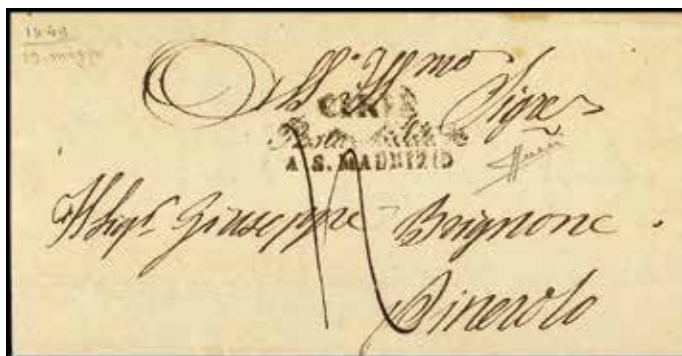 1849
19. maggio
All'Illmo Sigre
CIRIÈ
Posta Militare
A S. MAURIZIO
Il Sigr Giuseppe Brignone.
Pinerolo